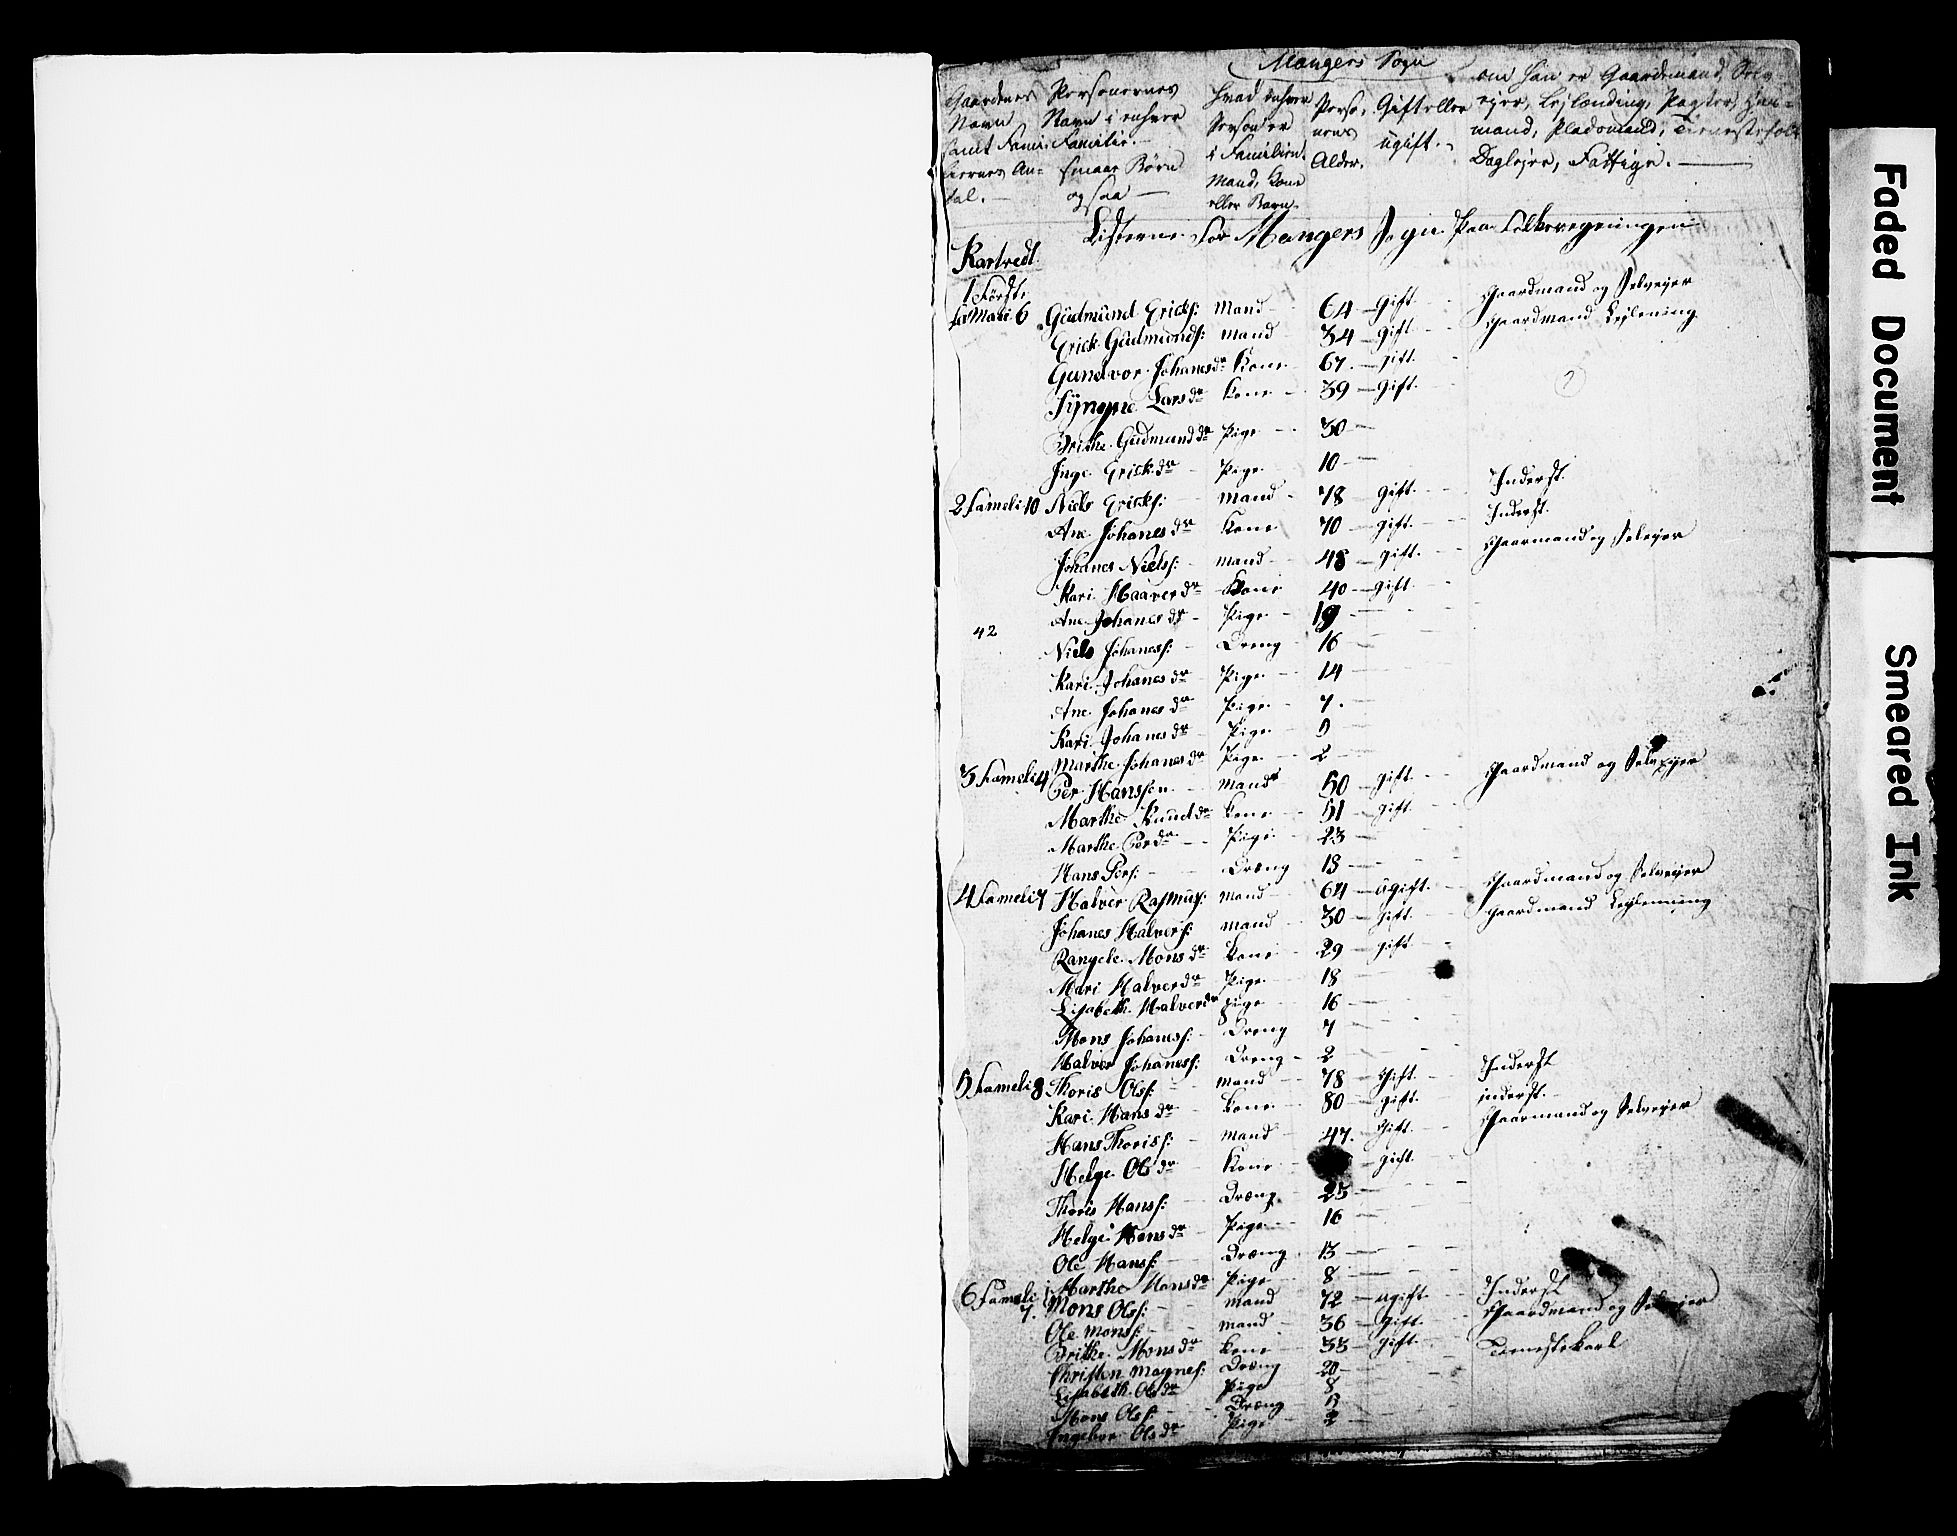 Mangers Sogn
Gaardenes Navn samt Familiernes Antal. —
Personernes Navn i enhver Familie. — smaae Børn ogsaa —
Hvad enhver Person er i Familien. Mand, Kone eller Barn.
Personens Alder.
Gift eller ugift.
om han er Gaardmand, Selvejer, Lejlænding, Pagter, Huusmand, Pladsmand, Tienestefolk Daglejer, Fattige. —
Listerne for Mangers Sogn Paa Folkeregningen
1 Første
6 Gudmund Ericks: Mand 64 Gift Gaardmand og Selvejer
Erick Gudmunds: mand 34 gift Gaardmand Lejlening
Gundvor Johanesdr Kone 67 gift
Synneve Larsdr Kone 39 Gift
Brithe Gudmunddr Pige 30
Inge Erickdr Pige 10
2 Fameli 10 Niels Ericks: mand 78 Gift Inderst
Ane Johanesdr Kone 70 gift Inderst.
Johanes Niels: mand 48 gift Gaarmand og Selvejer
Kari Haaverdr Kone 40 gift
Ane Johanesdr Pige 19
42
Niels Johaness: Dreng 16
Kari Johanesdr Pige 14
Ane Johanesdr Pige 7
Kari Johanesdr Pige
Marthe Johanesdr Pige 2
3 Fameli 4 Per Hanssen Mand 50 gift Gaardmand og Selvejer
Marthe Knuddr Kone 51 gift
Marthe Perdr Pige 23
Hans Pers: Dræng 18
4 Fameli 7 Halver Rasmus: mand 64 ugift Gaardmand og Selvejer
Johanes Halvers: mand 30 gift Gaardmand Lejlenning
Rangele Monsdr Kone 29 gift
Mari Halverdr Pige 18
Lisabeth Halverdr Pige 16
Mons Johaness: Dreng 7
Halver Johaness: Dreng 2
5 Fameli 8 Thoris Ols: mand 78 Gift Inderst
Kari Hansdr Kone 80 gift inderst.
Hans Thoris: mand 47 Gift Gaarmand og Selvejer
Helge Olsdr Kone gift
Thoris Hans: Dræng 25
Helge Hansdr Pige 16
Ole Hans: Dræng 13
Marthe Hansdr Pige 8
6 Fameli 7. Mons Ols: mand 72 ugift Inderst
Ole Mons: mand 36 Gift Gaardmand og Selvejer
Brithe Monsdr Kone 33 gift
Christen Magnes: Dræng 20 Tienestekarl
Lisabeth Olsdr Pige 8
Mons Ols: Dræng
Ingebor Olsdr Pige 2
Faded Document
Smeared Ink